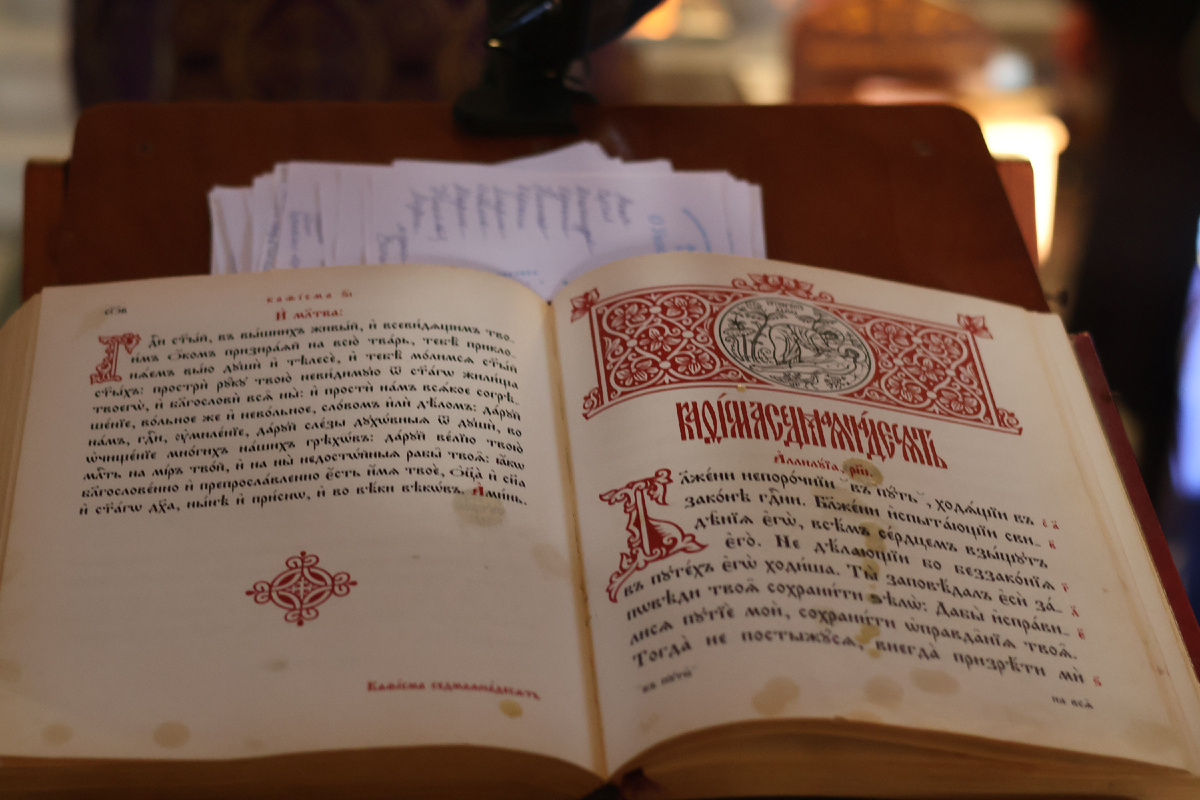 каѳі́сма ѕ҃і
И҆ мл҃тва:
Гдⷭ҇и ст҃ы́й, въ вы́шнихъ живы́й, и҆ всеви́дѧщимъ тво-
и́мъ ѻ҆́комъ призира́ѧй на всю̀ тва́рь, тебѣ̀ прикло-
нѧ́емъ вы́ю дꙋшѝ и҆ тѣлесѐ, и҆ тебѣ̀ мо́лимсѧ ст҃ы́й
ст҃ы́хъ: прострѝ рꙋ́кꙋ твою̀ неви́димꙋю ѿ ст҃а́гѡ жили́ща
твоегѡ̀, и҆ бл҃гословѝ всѧ̑ ны̀: и҆ простѝ на́мъ всѧ́кое согрѣ-
ше́нїе, во́льное же и҆ нево́льное, сло́вомъ и҆лѝ дѣ́ломъ: да́рꙋй
на́мъ, гдⷭ҇и, ᲂу҆миле́нїе, да́рꙋй сле́зы дꙋхѡ́вныѧ ѿ дꙋшѝ, во
ѡ҆чище́нїе мно́гихъ на́шихъ грѣхѡ́въ: да́рꙋй ве́лїю твою̀
млⷭ҇ть на мі́ръ тво́й, и҆ на ны̀ недостѡ́йныѧ рабы̑ твоѧ̑: ꙗ҆́кѡ
бл҃гослове́нно и҆ препросла́вленно є҆́сть и҆́мѧ твоѐ, ѻ҆ц҃а̀ и҆ сн҃а
и҆ ст҃а́гѡ дх҃а, ны́нѣ и҆ при́снѡ, и҆ во вѣ́ки вѣкѡ́въ. А҆ми́нь.
Каѳі́сма седмаѧна́десѧть
КАѲІ́СМА СЕДМАѦНА́ДЕСѦТЬ
А҆ллилꙋ́їа, рн҃і.
Бл҃же́ни непоро́чнїи въ пꙋ́ть, ходѧ́щїи въ
зако́нѣ гдⷭ҇ни. Бл҃же́ни и҆спыта́ющїи сви- в҃
дѣ̑нїѧ є҆гѡ̀, всѣ́мъ се́рдцемъ взы́щꙋтъ
є҆го̀. Не дѣ́лающїи бо беззако́нїѧ г҃
въ пꙋте́хъ є҆гѡ̀ ходи́ша. Ты̀ заповѣ́далъ є҆сѝ за́- д҃
пѡвѣди твоѧ̑ сохрани́ти ѕѣлѡ̀: Дабы̀ и҆спра́ви- є҃
лисѧ пꙋтїѐ моѝ, сохрани́ти ѡ҆правда̑нїѧ твоѧ̑.
Тогда̀ не постыжꙋ́сѧ, внегда̀ призрѣ́ти мѝ ѕ҃
въ пꙋти̑
на всѧ̑